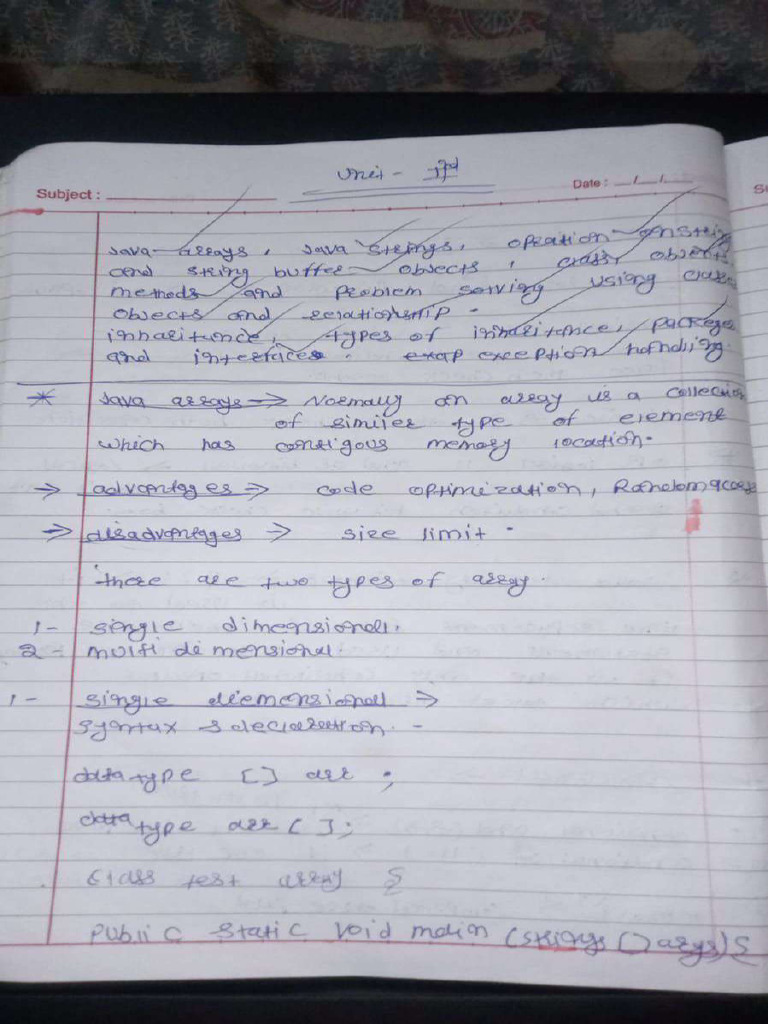 Unit - IInd
Subject :
Date : / /
Java arrays, Java strings, opration on string
and string buffer objects, class, objects
methods and problem solving using class
objects and relationship.
inharitunce, types of inharitence, packeges
and interfaces. exap exception handling.
* Java arrays → Normally an array is a collection
of similer type of element
which has contigous memory location.
→ advantages → code optimization, Random access
→ disadvantages → size limit.
there are two types of array.
1- single dimensionall.
2- multi dimensional.
1- single diemensionall →
Syntax & declaration. -
datatype [] arr ;
datatype arr [];
Class test array {
Public static void main (strings [] args) {